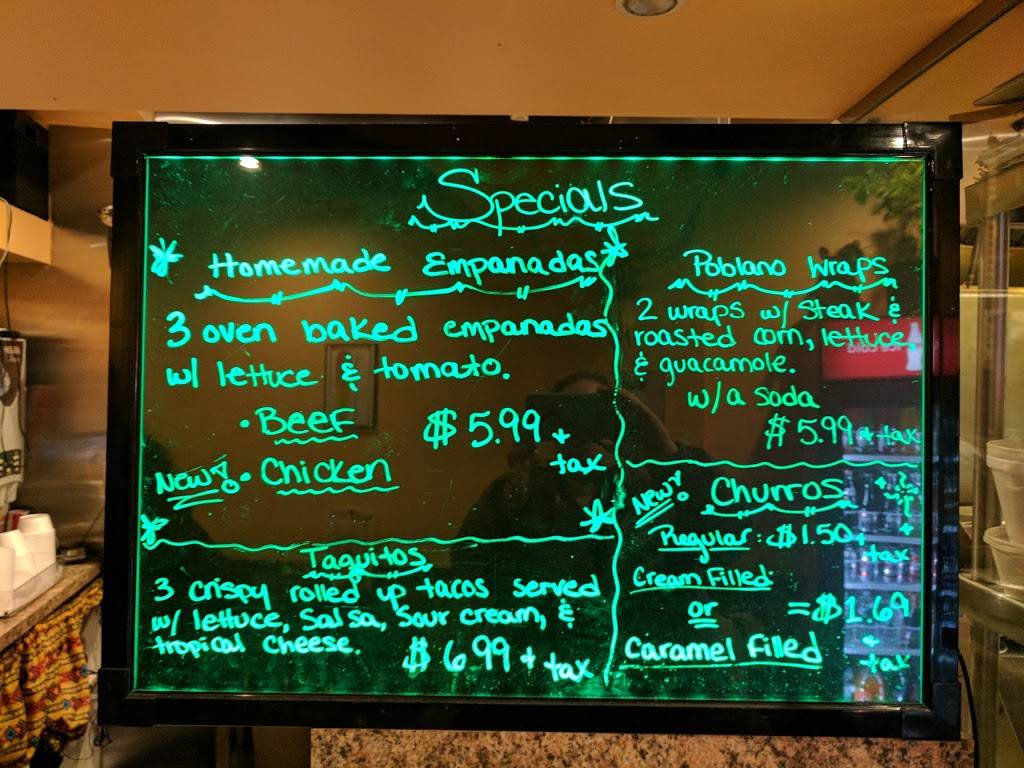 Specials
Homemade Empanadas
3 oven baked empanadas
w/ lettuce & tomato.
• Beef $5.99 +
tax
New! • Chicken
Taquitos
3 crispy rolled up tacos served
w/ lettuce, Salsa, Sour cream, &
tropical cheese.
$6.99 + tax
Poblano Wraps
2 wraps w/ Steak &
roasted corn, lettuce,
& guacamole.
w/a soda
$5.99 + tax
New! Churros
Regular: $1.50 +
tax
Cream Filled:
or = $1.69
Caramel Filled +
tax